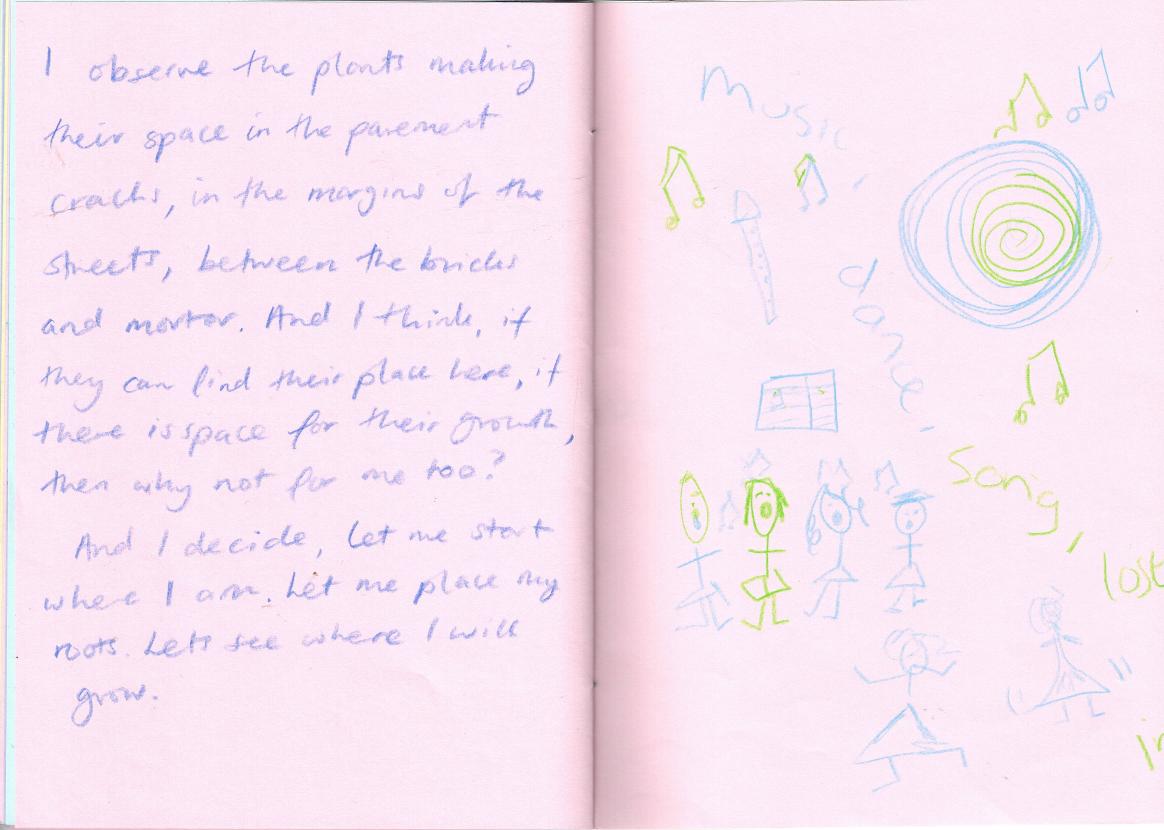 I observe the plants making
their space in the pavement
cracks, in the margins of the
streets, between the bricks
and mortar. And I think, if
they can find their place here, if
there is space for their growth,
then why not for me too?
And I decide, let me start
where I am. Let me place my
roots. Lets see where I will
grow.
Music,
dance,
Song,
lost
in